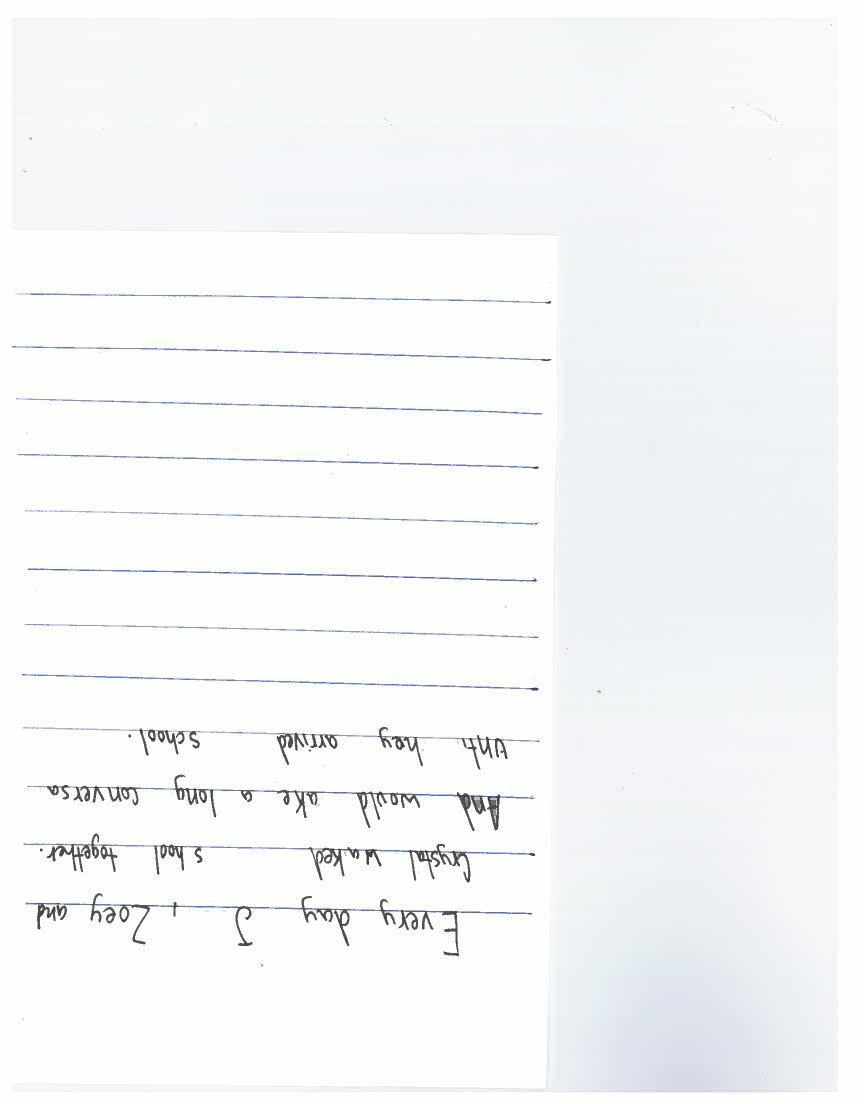 Every day J , Zoey and
Crystal waked shool together.
And would ake a long conversa
unti hey arrived school.